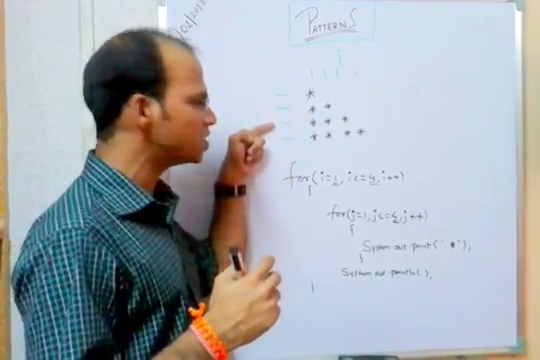 /02/2013
PATTERNS
*
* *
* * *
* * * *
for(i=1, i<=4, i++)
{
for(j=1, j<=4, j++)
{
System out print(" *");
}
System out println( );
}